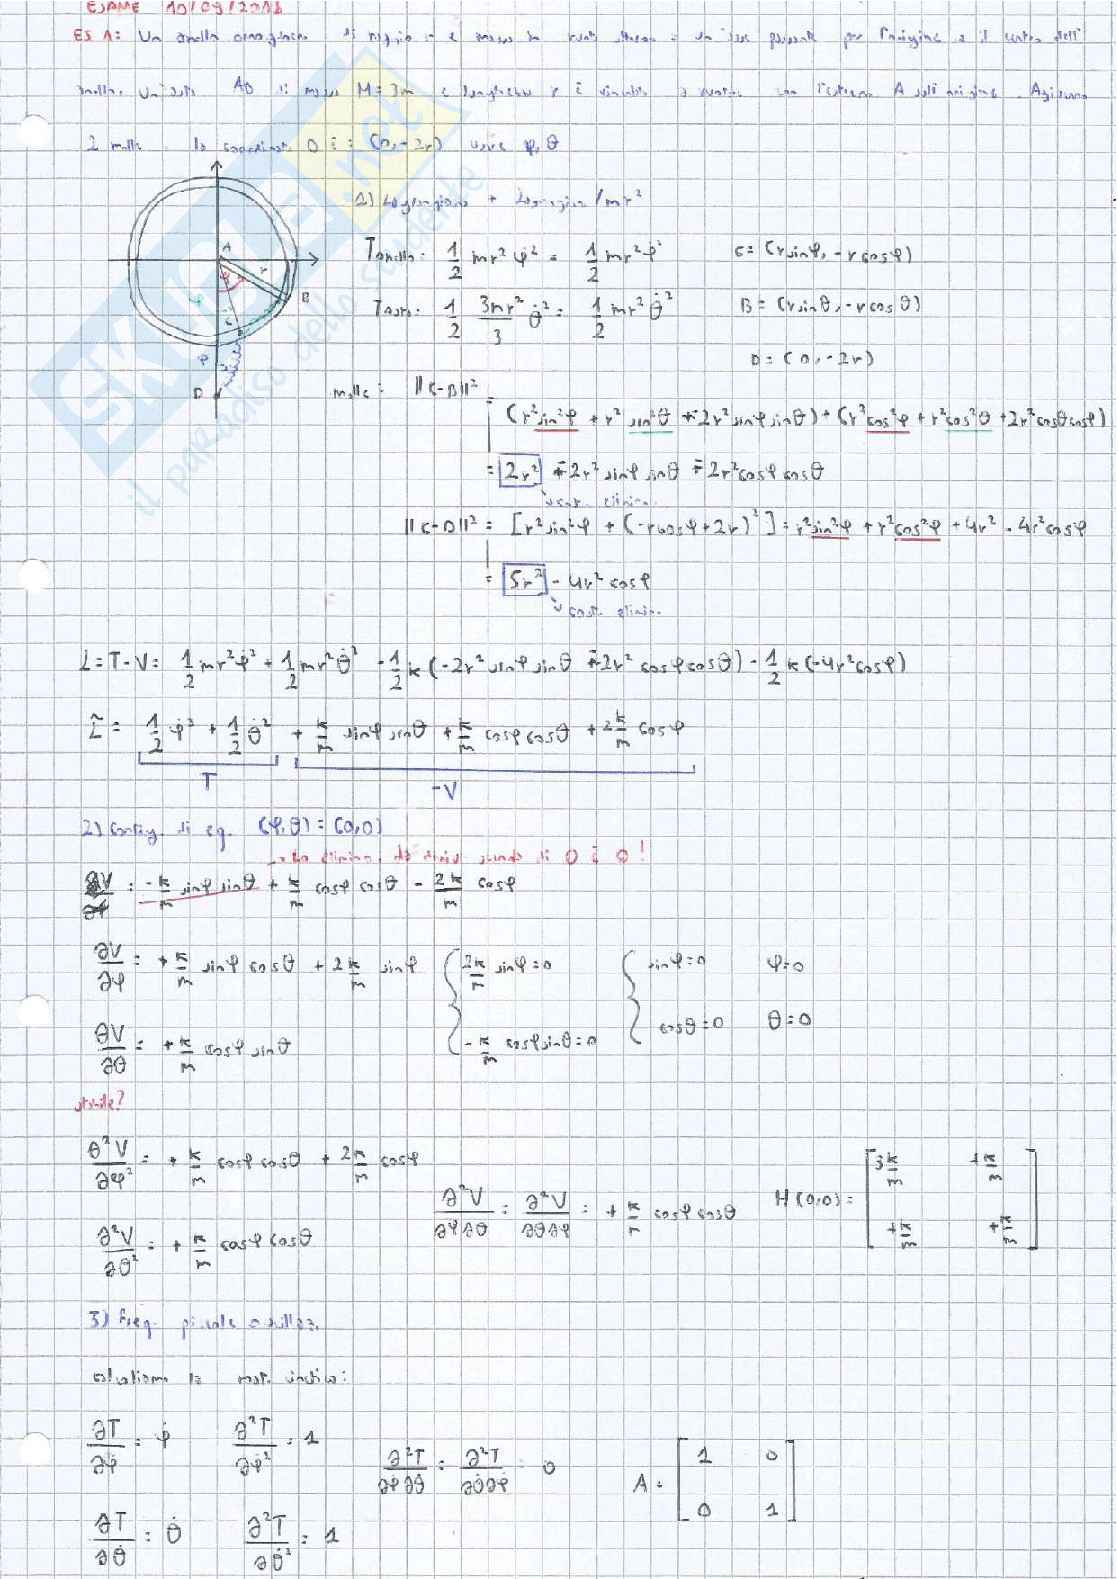 ESAME 10/09/2018
ES A: Un anello omogeneo di raggio r e massa m ruota attorno a un asse passante per l'origine e il centro dell'
anello. Un'asta AB di massa M=3m e lunghezza r è vincolata a ruotare con l'estremo A sull'origine. Agiscono
2 molle. la coordinata D è: (0,-2r) usare φ,θ
1) Lagrangiana + Lagrangiana/mr²
T anello: 1/2 mr² φ̇² = 1/2 mr² φ̇² C=(r sinφ, -r cosφ)
T asta: 1/2 3mr²/3 θ̇² = 1/2 mr² θ̇² B=(r sinθ, -r cosθ)
D=(0,-2r)
A r B C D φ φ
molle: ||C-B||² = (r² sin²φ + r² sin²θ - 2r² sinφ sinθ) + (r² cos²φ + r² cos²θ + 2r² cosθ cosφ)
= 2r² - 2r² sinφ sinθ - 2r² cosφ cosθ
cost. elimin.
||C-D||² = [r² sin²φ + (-r cosφ + 2r)²] = r² sin²φ + r² cos²φ + 4r² - 4r² cosφ
= 5r² - 4r² cosφ
cost. elimin.
L = T-V = 1/2 mr² φ̇² + 1/2 mr² θ̇² - 1/2 k(-2r² sinφ sinθ - 2r² cosφ cosθ) - 1/2 k(-4r² cosφ)
L̃ = 1/2 φ̇² + 1/2 θ̇² + k/m sinφ sinθ + k/m cosφ cosθ + 2k/m cosφ
T -V
2) Config. di eq. (φ,θ) = (0,0)
lo elimino, derivata seconda di 0 è 0!
∂V/∂φ = -k/m sinφ sinθ + k/m cosφ cosθ - 2k/m cosφ
∂V/∂φ = +k/m sinφ cosθ + 2k/m sinφ { 2k/m sinφ=0 { sinφ=0 φ=0
∂V/∂θ = +k/m cosφ sinθ -k/m cosφ sinθ=0 cosθ=0 θ=0
stabile?
∂²V/∂φ² = +k/m cosφ cosθ + 2k/m cosφ
∂²V/∂φ∂θ = ∂²V/∂θ∂φ = +k/m cosφ cosθ H(0,0) = [3k/m +k/m +k/m +k/m]
∂²V/∂θ² = +k/m cosφ cosθ
3) Freq. piccole oscillaz.
calcoliamo la mat. cinetica:
∂T/∂φ̇ = φ̇ ∂²T/∂φ̇² = 1
∂²T/∂φ̇∂θ̇ = ∂²T/∂θ̇∂φ̇ = 0 A = [1 0 0 1]
∂T/∂θ̇ = θ̇ ∂²T/∂θ̇² = 1
SKUOLA.net
il paradiso dello studente